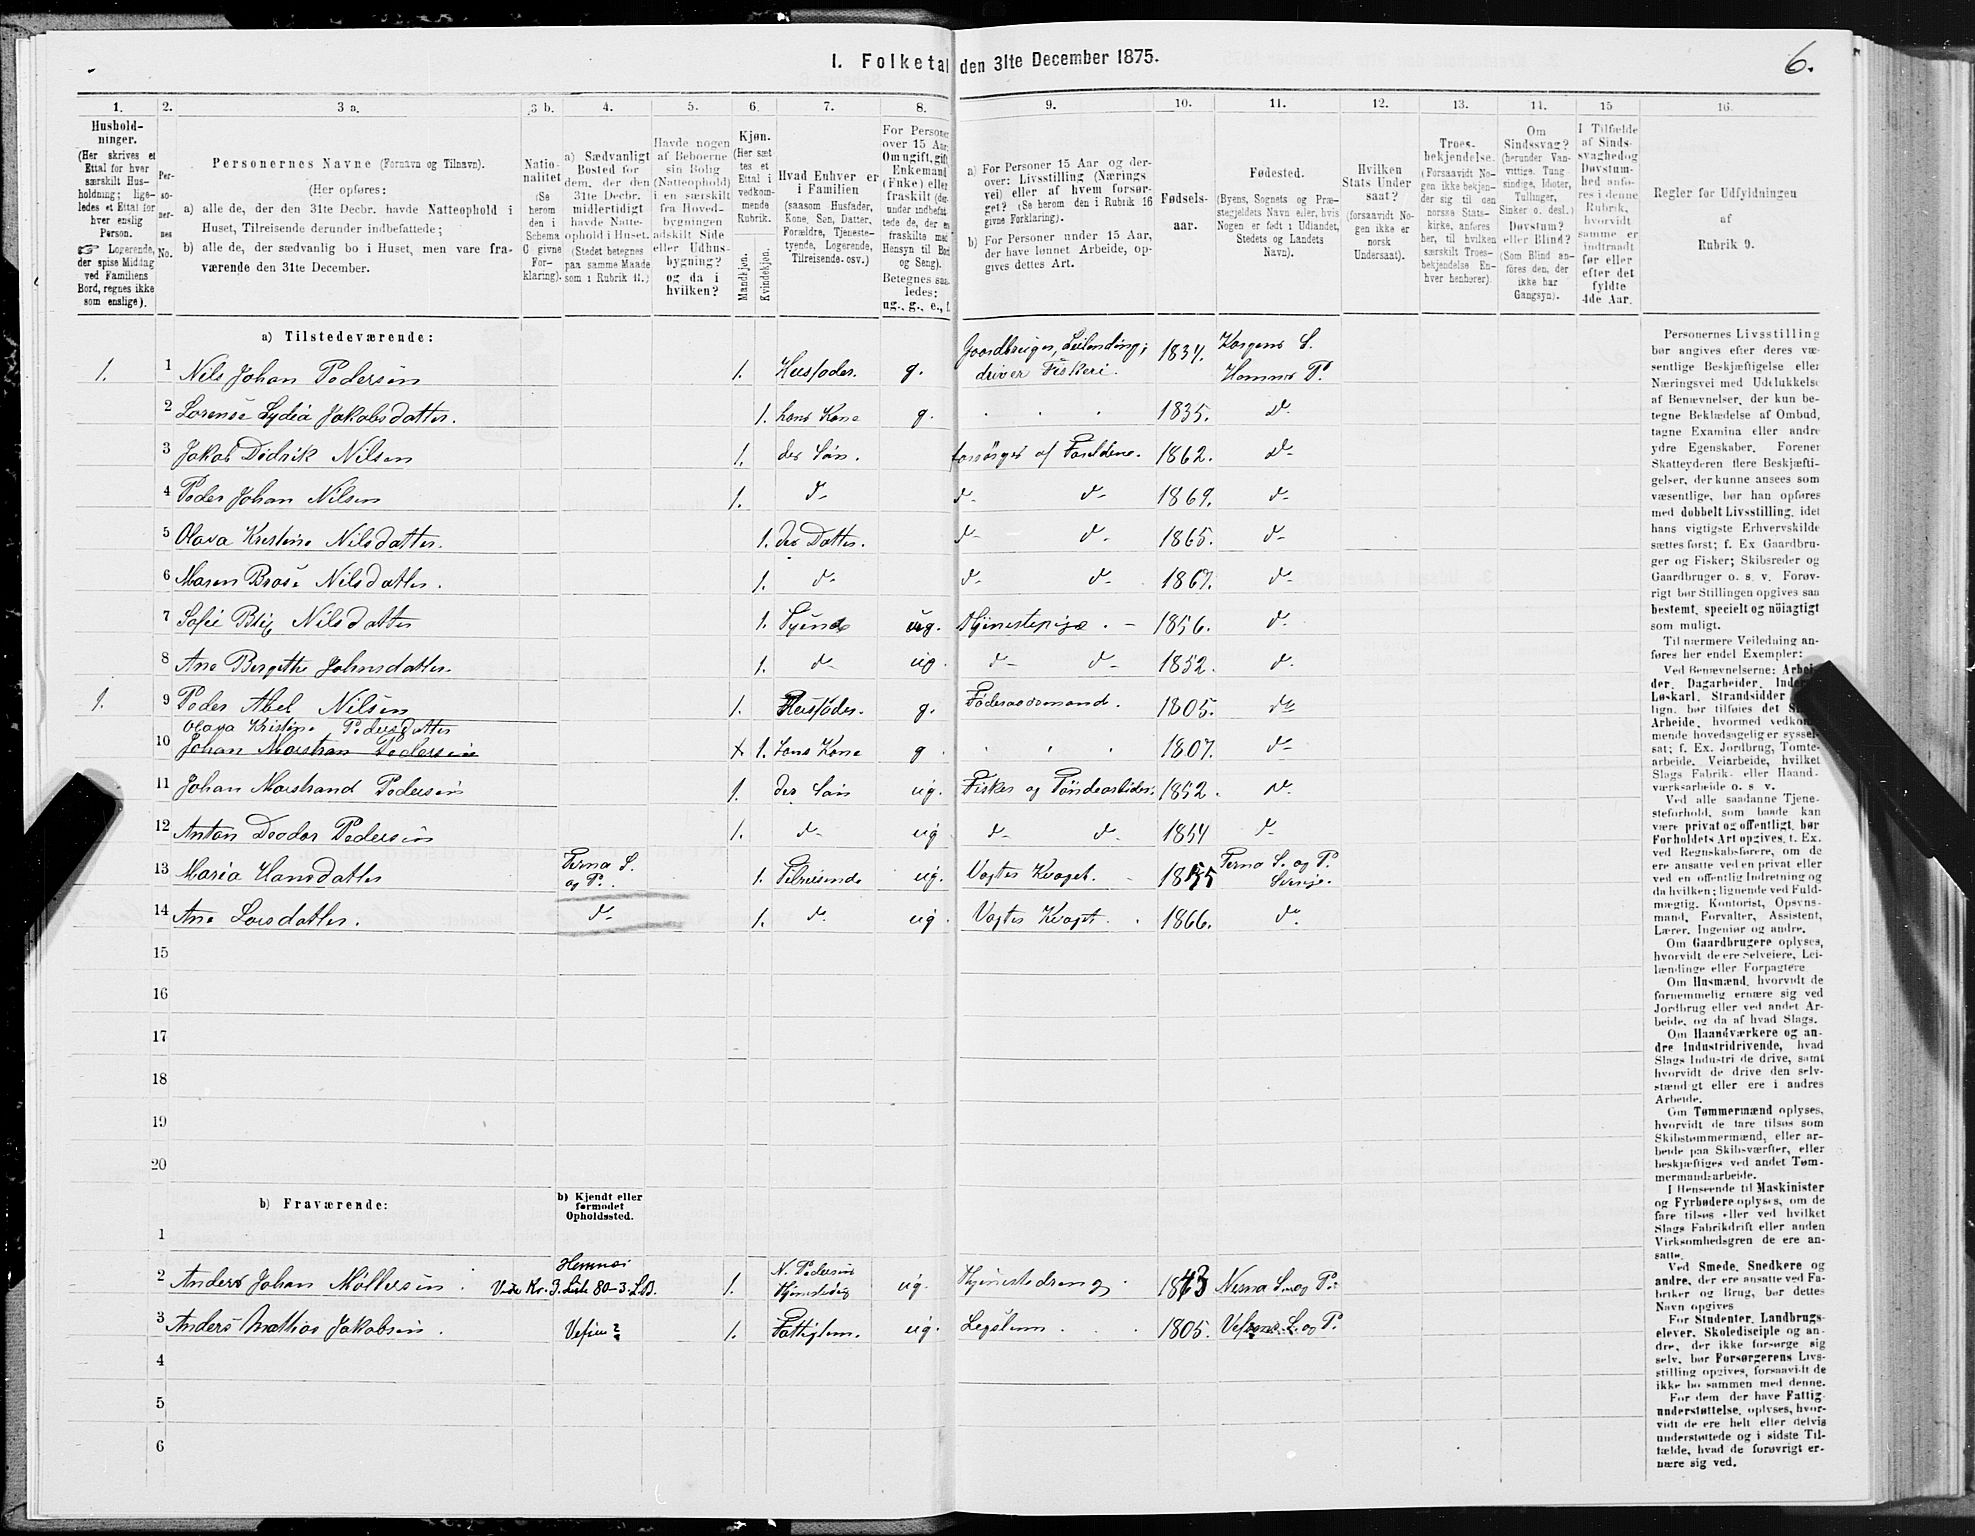 I. Folketal den 31te December 1875.
6.
1. 2. 3 a. 3 b. 4. 5. 6. 7. 8. 9. 10. 11. 12. 13. 14. 15 16.
Hushold-
ninger.
(Her skrives et
Ettal for hver
særskilt Hus-
holdning; lige-
ledes et Ettal for
hver enslig
Person.
☞ Logerende,
der spise Middag
ved Familiens
Bord, regnes ikke
som enslige).
Per-
so-
ner-
nes
No.
Personernes Navne (Fornavn og Tilnavn).
(Her opføres:
a) alle de, der den 31te Decbr. havde Natteophold i
Huset, Tilreisende derunder indbefattede;
b) alle de, der sædvanlig bo i Huset, men vare fra-
værende den 31te December.
Natio-
nalitet
(Se
herom
den i
Schema
O givne
For-
klaring).
a) Sædvanligt
Bosted for
dem, der den
31te Decbr.
midlertidigt
havde Natte-
ophold i Huset.
(Stedet betegnes
paa samme Maade
som i Rubrik 11.)
Havde nogen
af Beboerne
sin Bolig
(Natteophold)
i en særskilt
fra Hoved-
bygningen
adskilt Side
eller Udhus-
bygning?
og da i
hvilken?
Kjøn.
(Her sæt
tes et
Ettal i
vedkom-
mende
Rubrik.
Mandkjøn.
Kvindekjøn.
Hvad Enhver er
i Familien
(saasom Husfader,
Kone, Søn, Datter,
Forældre, Tjeneste-
tyende, Logerende,
Tilreisende osv.)
For Personer
over 15 Aar:
Om ugift, gift,
Enkemand
(Enke) eller
fraskilt (der-
under indbefat-
tede de, der er
fraskilte med
Hensyn til Bord
og Seng).
Betegnes saa-
ledes:
ug., g., e., f.
a) For Personer 15 Aar og der-
over: Livsstilling (Nærings
vei) eller af hvem forsør-
get? (Se herom den i Rubrik 16
givne Forklaring).
b) For Personer under 15 Aar,
der have lønnet Arbeide, op-
gives dettes Art.
Fødsels-
aar.
Fødested.
(Byens, Sognets og Præ-
stegjeldets Navn eller, hvis
Nogen er født i Udlandet,
Stedets og Landets
Navn).
Hvilken
Stats Under
saat?
(forsaavidt No-
gen ikke er
norsk
Undersaat).
Troes-
bekjendelse.
(Forsaavidt No-
gen ikke bekjen-
der sig til den
norske Stats-
kirke, anføres
her, til hvilken
særskilt Troes-
bekjendelse En-
hver henhører).
Om
Sindssvag?
(herunder Van-
vittige, Tung
sindige, Idioter,
Tullinger,
Sinker o. desl.)
Døvstum?
eller Blind?
(Som Blind an-
føres den, der
ikke har
Gangsyn).
I Tilfælde
af Sinds-
svaghed og
Døvstum-
hed anfø-
res i denne
Rubrik,
hvorvidt
samme er
indtraadt
før eller
efter det
fyldte
4de Aar.
Regler for Udfyldningen
af
Rubrik 9.
a) Tilstedeværende:
1. 1 Nils Johan Pedersen 1. Husfader. g. Gaardbruger, Leilending, driver Fiskeri. 1834. Korgens S. Hemnes P.
2 Lorense Lydia Jakobsdatter. 1. hans Kone g. 1835. d-
3 Jakob Didrik Nilsen 1. des Søn. forsørges af Forældrene. 1862. d-
4 Peder Johan Nilsen 1. d- d- d- 1869. d-
5 Olava Kristine Nilsdatter. 1. des Datter. d- d- 1865. d-
6 Maren Nilsdatter. 1. d- d- d- 1867. d-
7 Sofie Nilsdatter 1. Tyende ug. Tjenestepige. 1856. d-
8 Ane Bergithe Johnsdatter. 1. d- ug. d- d- 1852. d-
1. 9 Peder Abel Nilsen 1. Husfader. g. Føderaadsmand. 1805. d-
Olava Kristine Pedersdatter
10 Johan Marstran Pedersen x 1. hans Kone g 1807. d-
11 Johan Marstrand Pedersen 1. des Søn ug. Fisker og Tøndearbeider. 1852. d-
12 Anton Deodor Pedersen 1. d- ug d- d- 1854 d-
13 Maria Hansdatter Terna S. og P. 1. Tilreisende ug. Vogter Kvæget. 1855 Terna S. og P. Sverige.
14 Ane Larsdatter. d- 1. d. ug. Vogter Kvæget. 1866. d-
15
16
17
18
19
20
b) Fraværende:
b) Kjendt eller
formodet
Opholdssted.
1
2 Anders Johan Mollersen. Hemnes Vide Kr. 3. Liste 80-3 L.B. 1. N. Pedersens Tjenestedreng ug. Tjenestedreng 1843 Nesna S. og P.
3 Anders Mathias Jakobsen. Vefsen? 1. Fattiglem. ug. Legslem 1805. Vefsens S. og P.
4
5
6
Personernes Livsstilling
bør angives efter deres væ-
sentlige Beskjæftigelse eller
Næringsvei med Udelukkelse
af Benævnelser, der kun be-
tegne Beklædelse af Ombud,
tagne Examina eller andre
ydre Egenskaber. Forener
Skatteyderen flere Beskjæfti-
gelser, der kunne ansees som
væsentlige, bør han opføres
med dobbelt Livsstilling, idet
hans vigtigste Erhvervskilde
sættes først; f. Ex Gaardbru-
ger og Fisker; Skibsreder og
Gaardbruger o. s. v. Forøv-
rigt bør Stillingen opgives saa
bestemt, specielt og nøiagtigt
som muligt.
Til nærmere Veiledning an-
føres her endel Exempler:
Ved Benævnelserne: Arbei-
der, Dagarbeider, Inder
Løskarl, Strandsidder
lign. bør tilføies det
Arbeide, hvormed vedkom-
mende hovedsagelig er syssel-
sat; f. Ex. Jordbrug, Tomte-
arbeide, Veiarbeide, hvilket
Slags Fabrik- eller Haand-
værksarbeide o. s v.
Ved alle saadanne Tjene-
steforhold, som baade kan
være privat og offentligt, bør
Forholdets Art opgives, t. Ex.
ved Regnskabsførere, om de
ere ansatte ved en privat eller
ved en offentlig Indretning og
da hvilken; lignende ved Fuld-
mægtig, Kontorist, Opsyns-
mand, Forvalter, Assistent,
Lærer, Ingeniør og andre.
Om Gaardbrugere oplyses,
hvorvidt de ere Selveiere, Lei-
lændinge eller Forpagtere
Om Husmænd, hvorvidt de
fornemmelig ernære sig ved
Jordbrug eller ved andet Ar-
beide, og da af hvad Slags.
Om Haandværkere og an-
dre Industridrivende, hvad
Slags Industri de drive, samt
hvorvidt de drive den selv-
stændigt eller ere i andres
Arbeide.
Om Tømmermænd oplyses,
hvorvidt de fare tilsøs som
Skibstømmermænd, eller ar-
beide paa Skibsværfter, eller
beskjæftiges ved andet Tøm-
mermandsarbeide.
I Henseende til Maskinister
og Fyrbødere oplyses, om de
fare tilsøs eller ved hvilket
Slags Fabrikdrift eller anden
Virksomhedsgren de ere an-
satte.
Ved Smede, Snedkere og
andre, der ere ansatte ved Fa-
briker og Brug, bør dettes
Navn opgives
For Studenter, Landbrugs-
elever, Skoledisciple og an-
dre, der ikke forsørge sig
selv, bør Forsørgerens Livs-
stilling opgives, forsaavidt de
ikke bo sammen med denne.
For dem der have Fattig-
understøttelse, oplyses, hvor-
vidt de ere helt eller delvis
understøttede og i sidste Til-
fælde, hvad de forøvrigt er-
nære sig ved.